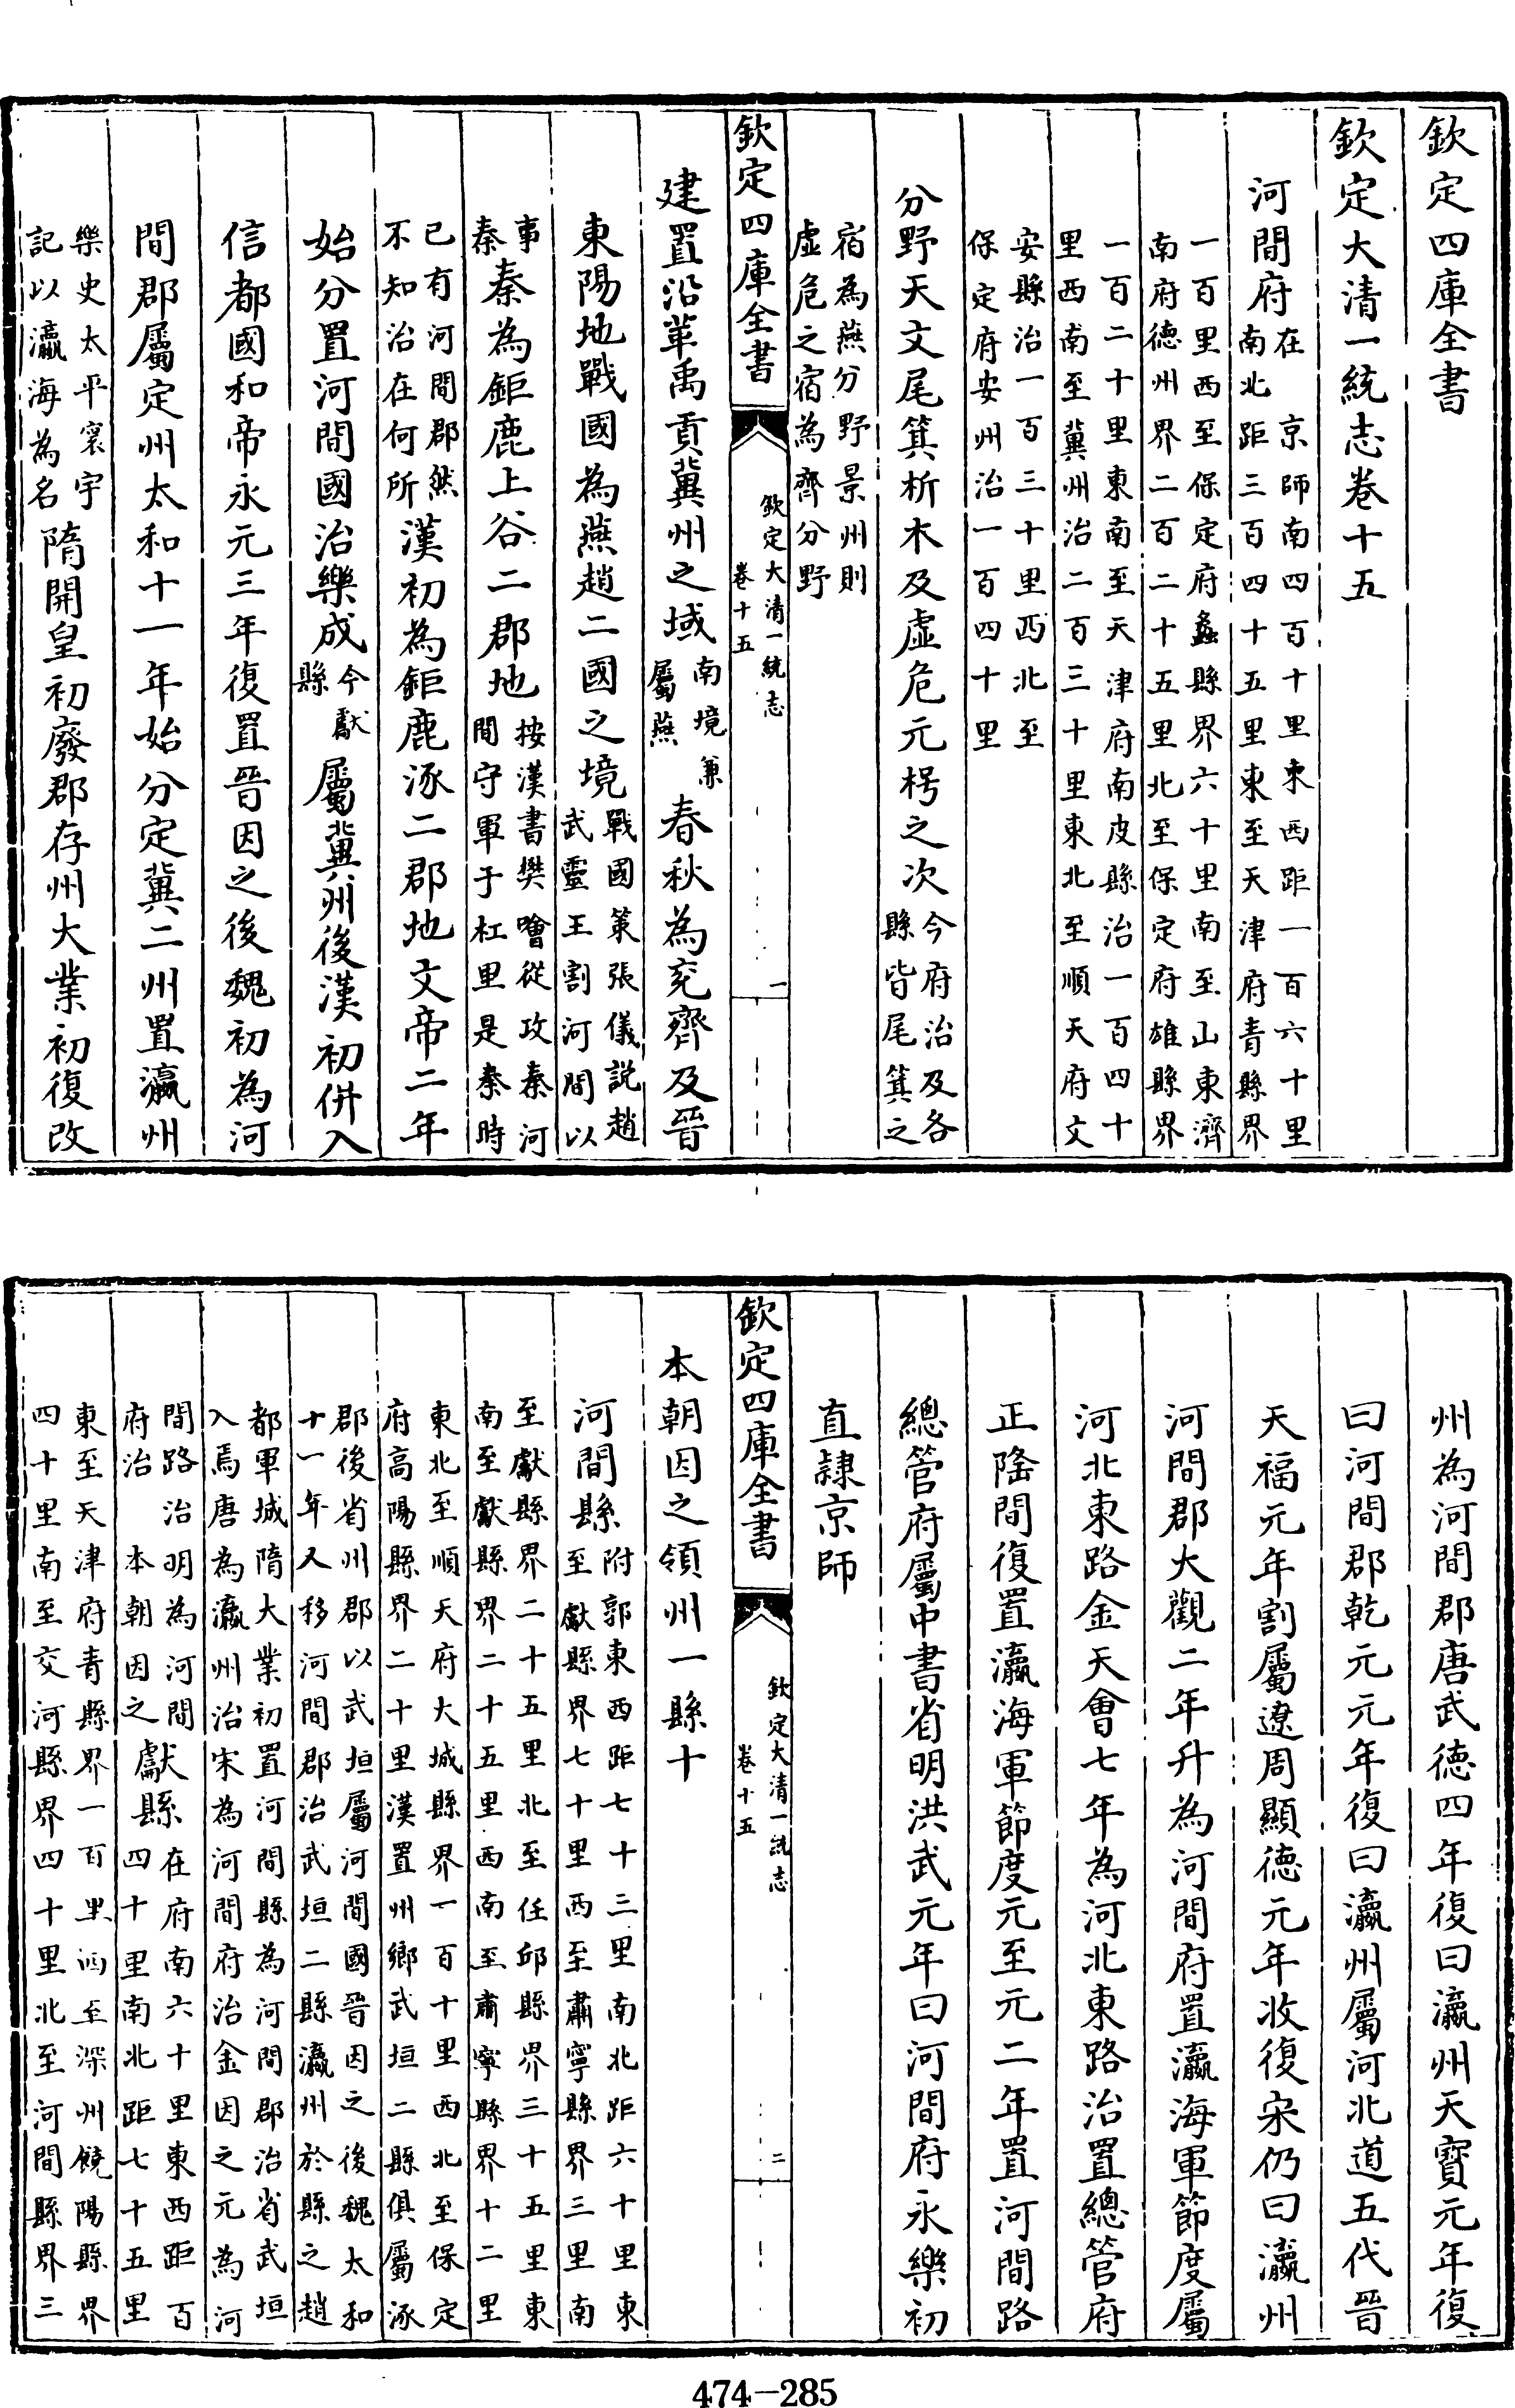 欽定四庫全書
欽定大清一統志卷十五
河間府在京師南四百十里東西距一百六十里
南北距三百四十五里東至天津府青縣界
一百里西至保定府蠡縣界六十里南至山東濟
南府德州界二百二十五里北至保定府雄縣界
一百二十里東南至天津府南皮縣治一百四十
里西南至冀州治二百三十里東北至順天府文
安縣治一百三十里西北至
保定府安州治一百四十里
分野天文尾箕析木及虛危元枵之次今府治及各
縣皆尾箕之
宿為燕分野景州則
虛危之宿為齊分野
欽定四庫全書
欽定大清一統志
卷十五
一
建置沿革禹貢冀州之域南境兼
屬燕
春秋為兗齊及晉
東陽地戰國為燕趙二國之境戰國策張儀説趙
武靈王割河間以
事
秦
秦為鉅鹿上谷二郡地按漢書樊噲從攻秦河
間守軍于杠里是秦時
已有河間郡然
不知治在何所
漢初為鉅鹿涿二郡地文帝二年
始分置河間國治樂成今獻
縣
屬冀州後漢初併入
信都國和帝永元三年復置晉因之後魏初為河
間郡屬定州太和十一年始分定冀二州置瀛州
樂史太平寰宇
記以瀛海為名
隋開皇初廢郡存州大業初復改
州為河間郡唐武德四年復曰瀛州天寶元年復
曰河間郡乾元元年復曰瀛州屬河北道五代晉
天福元年割屬遼周顯德元年收復宋仍曰瀛州
河間郡大觀二年升為河間府置瀛海軍節度屬
河北東路金天會七年為河北東路治置總管府
正隆間復置瀛海軍節度元至元二年置河間路
總管府屬中書省明洪武元年曰河間府永樂初
直隸京師
欽定四庫全書
欽定大清一統志
卷十五
二
本朝因之領州一縣十
河間縣附郭東西距七十三里南北距六十里東
至獻縣界七十里西至肅寧縣界三里南
至獻縣界二十五里北至任邱縣界三十五里東
南至獻縣界二十五里西南至肅寧縣界十二里
東北至順天府大城縣界一百十里西北至保定
府高陽縣界二十里漢置州鄉武垣二縣俱屬涿
郡後省州郡以武垣屬河間國晉因之後魏太和
十一年又移河間郡治武垣二縣瀛州於縣之趙
都軍城隋大業初置河間縣為河間郡治省武垣
入焉唐為瀛州治宋為河間府治金因之元為河
間路治明為河間
府治本朝因之
獻縣在府南六十里東西距百
四十里南北距七十五里
東至天津府青縣界一百里西至深州饒陽縣界
四十里南至交河縣界四十里北至河間縣界三
474-285